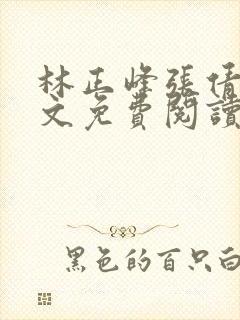 林正峰張倩
文免費閱讀
黑色的百只白